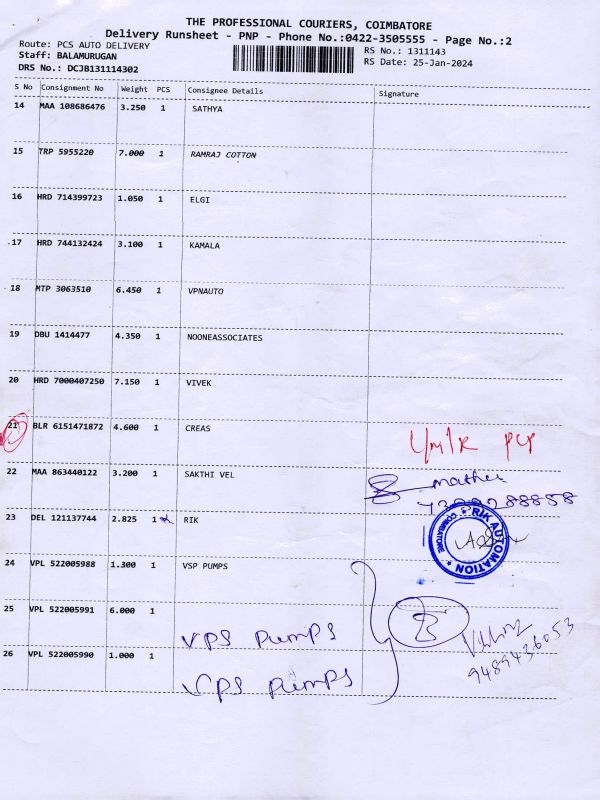 THE PROFESSIONAL COURIERS, COIMBATORE
Delivery Runsheet - PNP - Phone No.:0422-3505555 - Page No.:2
Route: PCS AUTO DELIVERY RS No.: 1311143
Staff: BALAMURUGAN RS Date: 25-Jan-2024
DRS No.: DCJB131114302
S No Consignment No Weight PCS Consignee Details Signature
14 MAA 108686476 3.250 1 SATHYA
15 TRP 5955220 7.000 1 RAMRAJ COTTON
16 HRD 714399723 1.050 1 ELGI
17 HRD 744132424 3.100 1 KAMALA
18 MTP 3063510 6.450 1 VPNAUTO
19 DBU 1414477 4.350 1 NOONEASSOCIATES
20 HRD 7000407250 7.150 1 VIVEK
21 BLR 6151471872 4.600 1 CREAS
22 MAA 863440122 3.200 1 SAKTHI VEL
23 DEL 121137744 2.825 1 RIK
RIK AUTOMATION
COIMBATORE
24 VPL 522005988 1.300 1 VSP PUMPS
25 VPL 522005991 6.000 1 VPS PUMPS
9489436053
26 VPL 522005990 1.000 1 VPS PUMPS